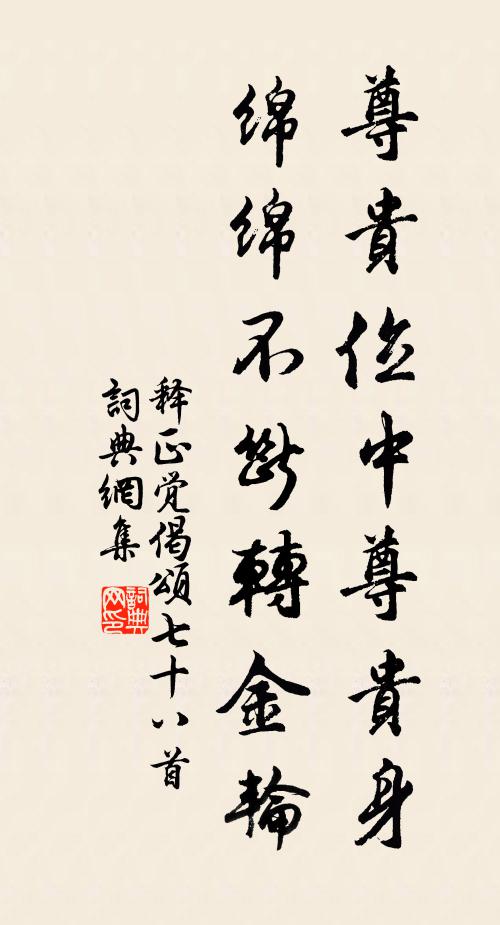 尊貴位中尊貴身
綿綿不斷轉金輪
释正觉偈頌七十八首
詞典網集
詞典网印